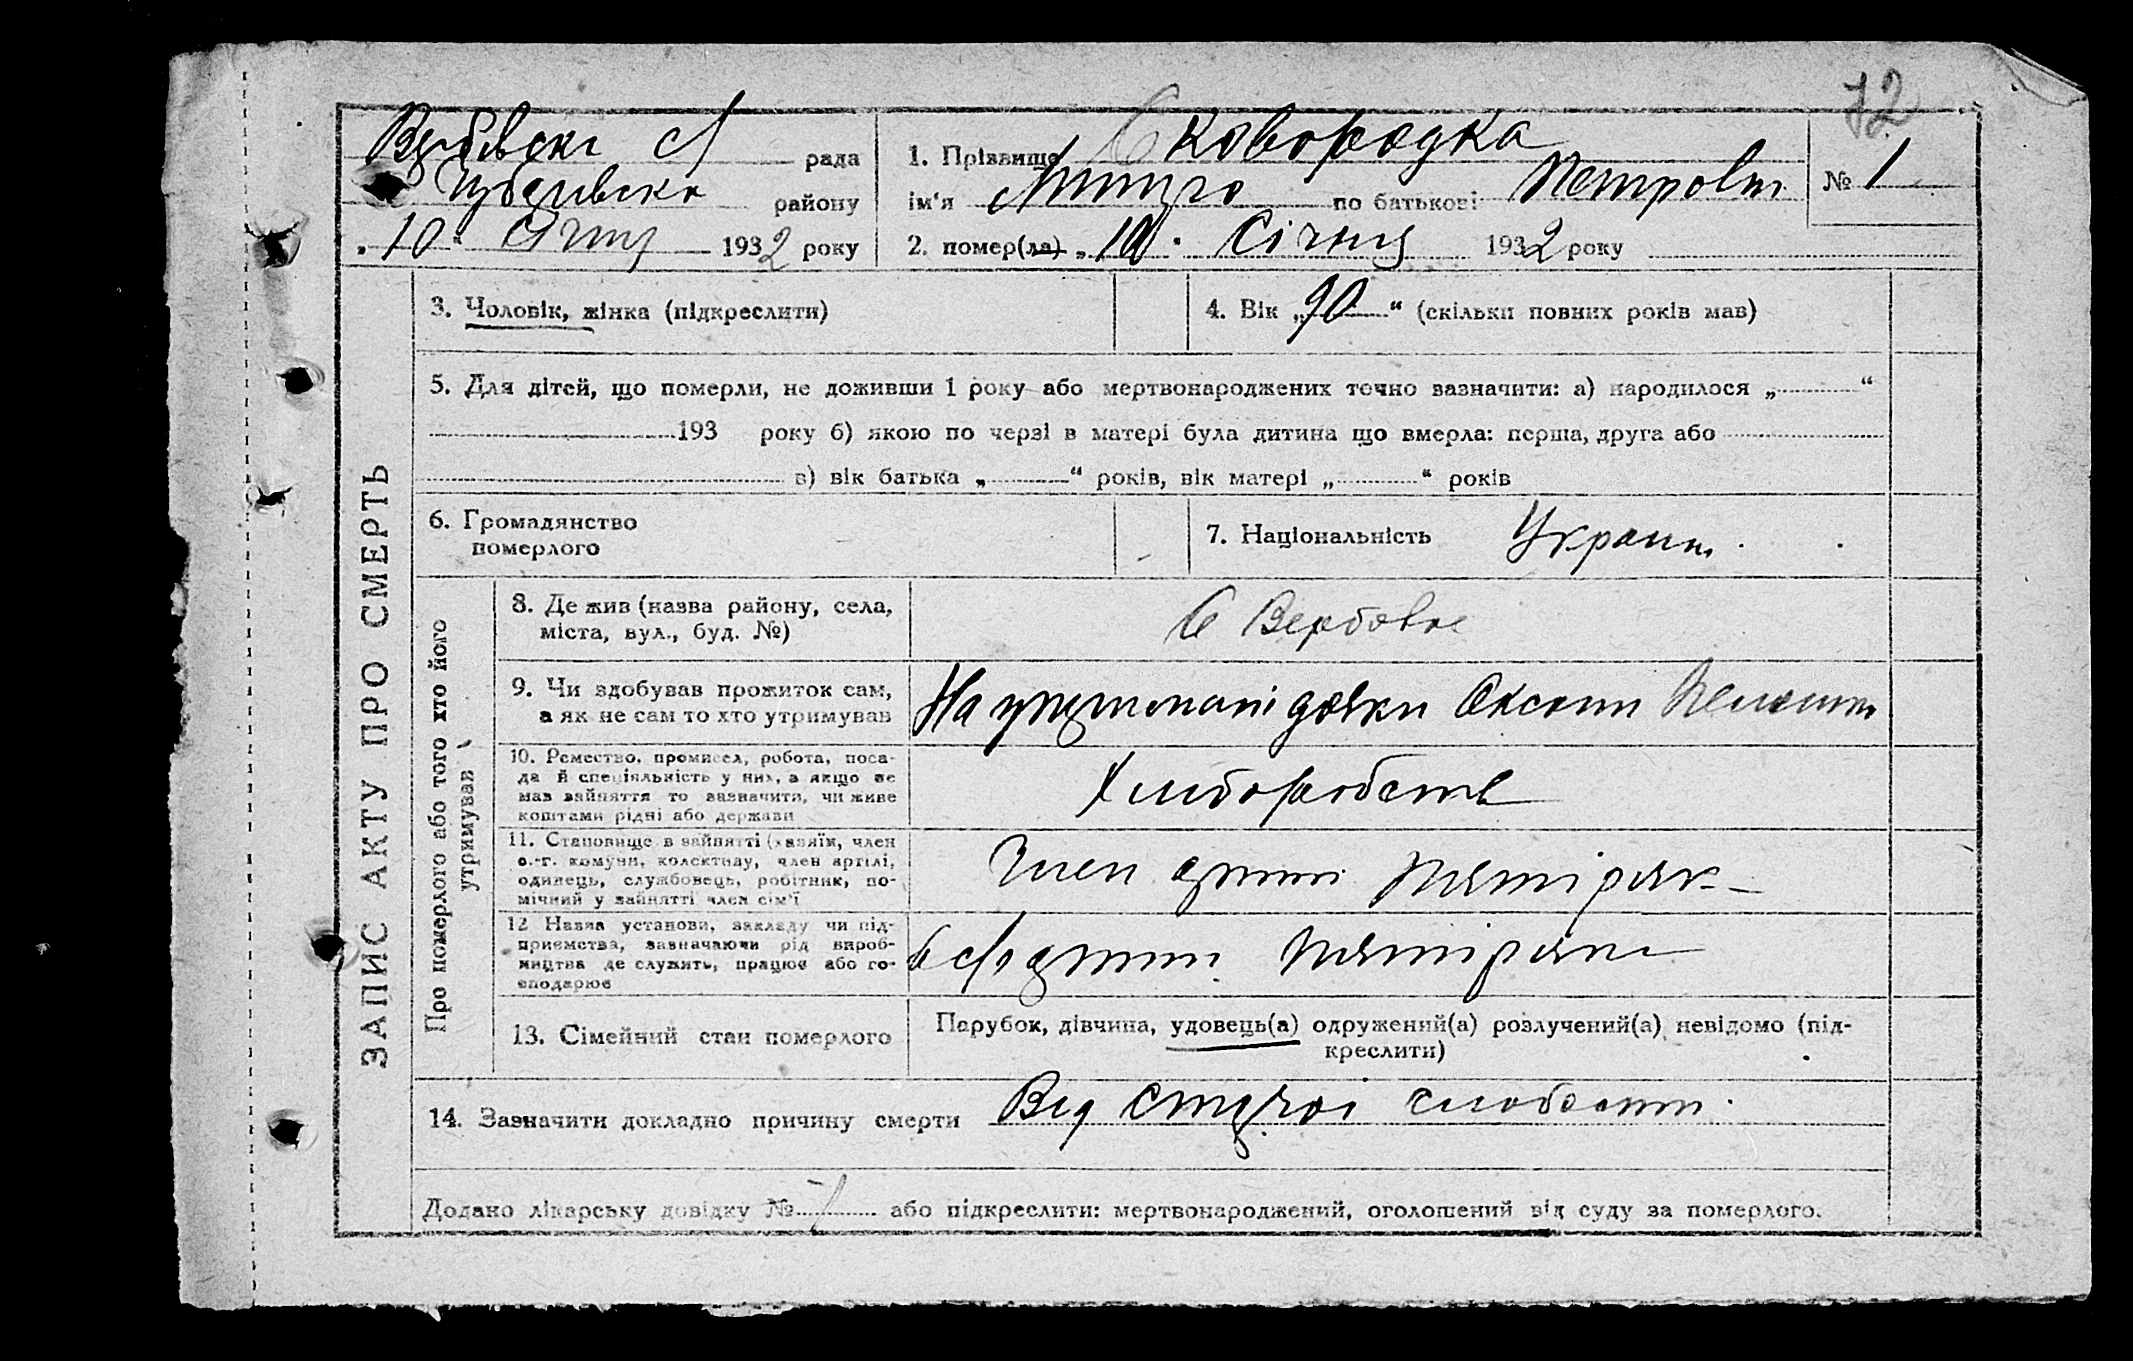 72
рада
1. Прізвище Сковородка
№ 1
району
ім'я Дмитро по батькові Петров
„10“ Січня 1932 року
2. помер(ла) „10“ Січня 1932 року
ЗАПИС АКТУ ПРО СМЕРТЬ
3. Чоловік, жінка (підкреслити)
4. Вік „90“ (скільки повних років мав)
5. Для дітей, що померли, не доживши 1 року або мертвонароджених точно вазначити: а) народилося „ “
193 року б) якою по черзі в матері була дитина що вмерла: перша, друга або
в) вік батька „ “ років, вік матері „ “ років
6. Громадянство
померлого
7. Національність Украин.
Про померлого або того хто його
утримував
8. Де жив (назва району, села,
міста, вул., буд. №)
С Вербове
9. Чи здобував прожиток сам,
а як не сам то хто утримував
На утримані дочки Оксани
10. Ремество, промисел, робота, поса-
да й спеціяльність у них, а якщо не
мав зайняття то вазначити, чи живе
коштами рідні або держави
Хліборобств
11. Становище в зайнятті (хазяїн, член
с.-г. комуни, колективу, член артілі,
одинець, службовець, робітник, по-
мічний у зайнятті член сім'ї
Член артілі
12 Назва установи, закладу чи під-
приємства, зазначаючи рід вироб-
ництва де служить, працює або го-
сподарює
13. Сімейний стан померлого
Парубок, дівчина, удовець(а) одружений(а) розлучений(а) невідомо (під-
креслити)
14. Зазначити докладно причину смерти Від старчої слабости.
Додано лікарську довідку № або підкреслити: мертвонароджений, оголошений від суду за померлого.